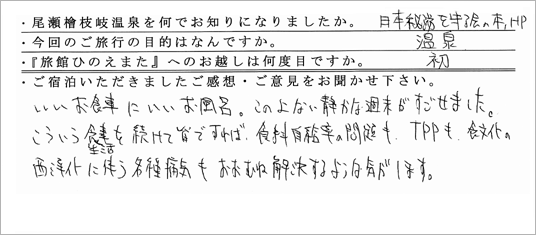 ・尾瀬檜枝岐温泉を何でお知りになりましたか。 日本秘湯を守る会の本,HP
・今回のご旅行の目的はなんですか。 温泉
・『旅館ひのえまた』へのお越しは何度目ですか。 初
・ご宿泊いただきましたご感想・ご意見をお聞かせ下さい。
いいお食事にいいお風呂。このよない静かな週末がすごせました。
こういう食事を続けて皆ですれば、食料自給率の問題も、TPPも、食文化の
生活
西洋化に伴う各種病気もおおむね解決するような気がします。